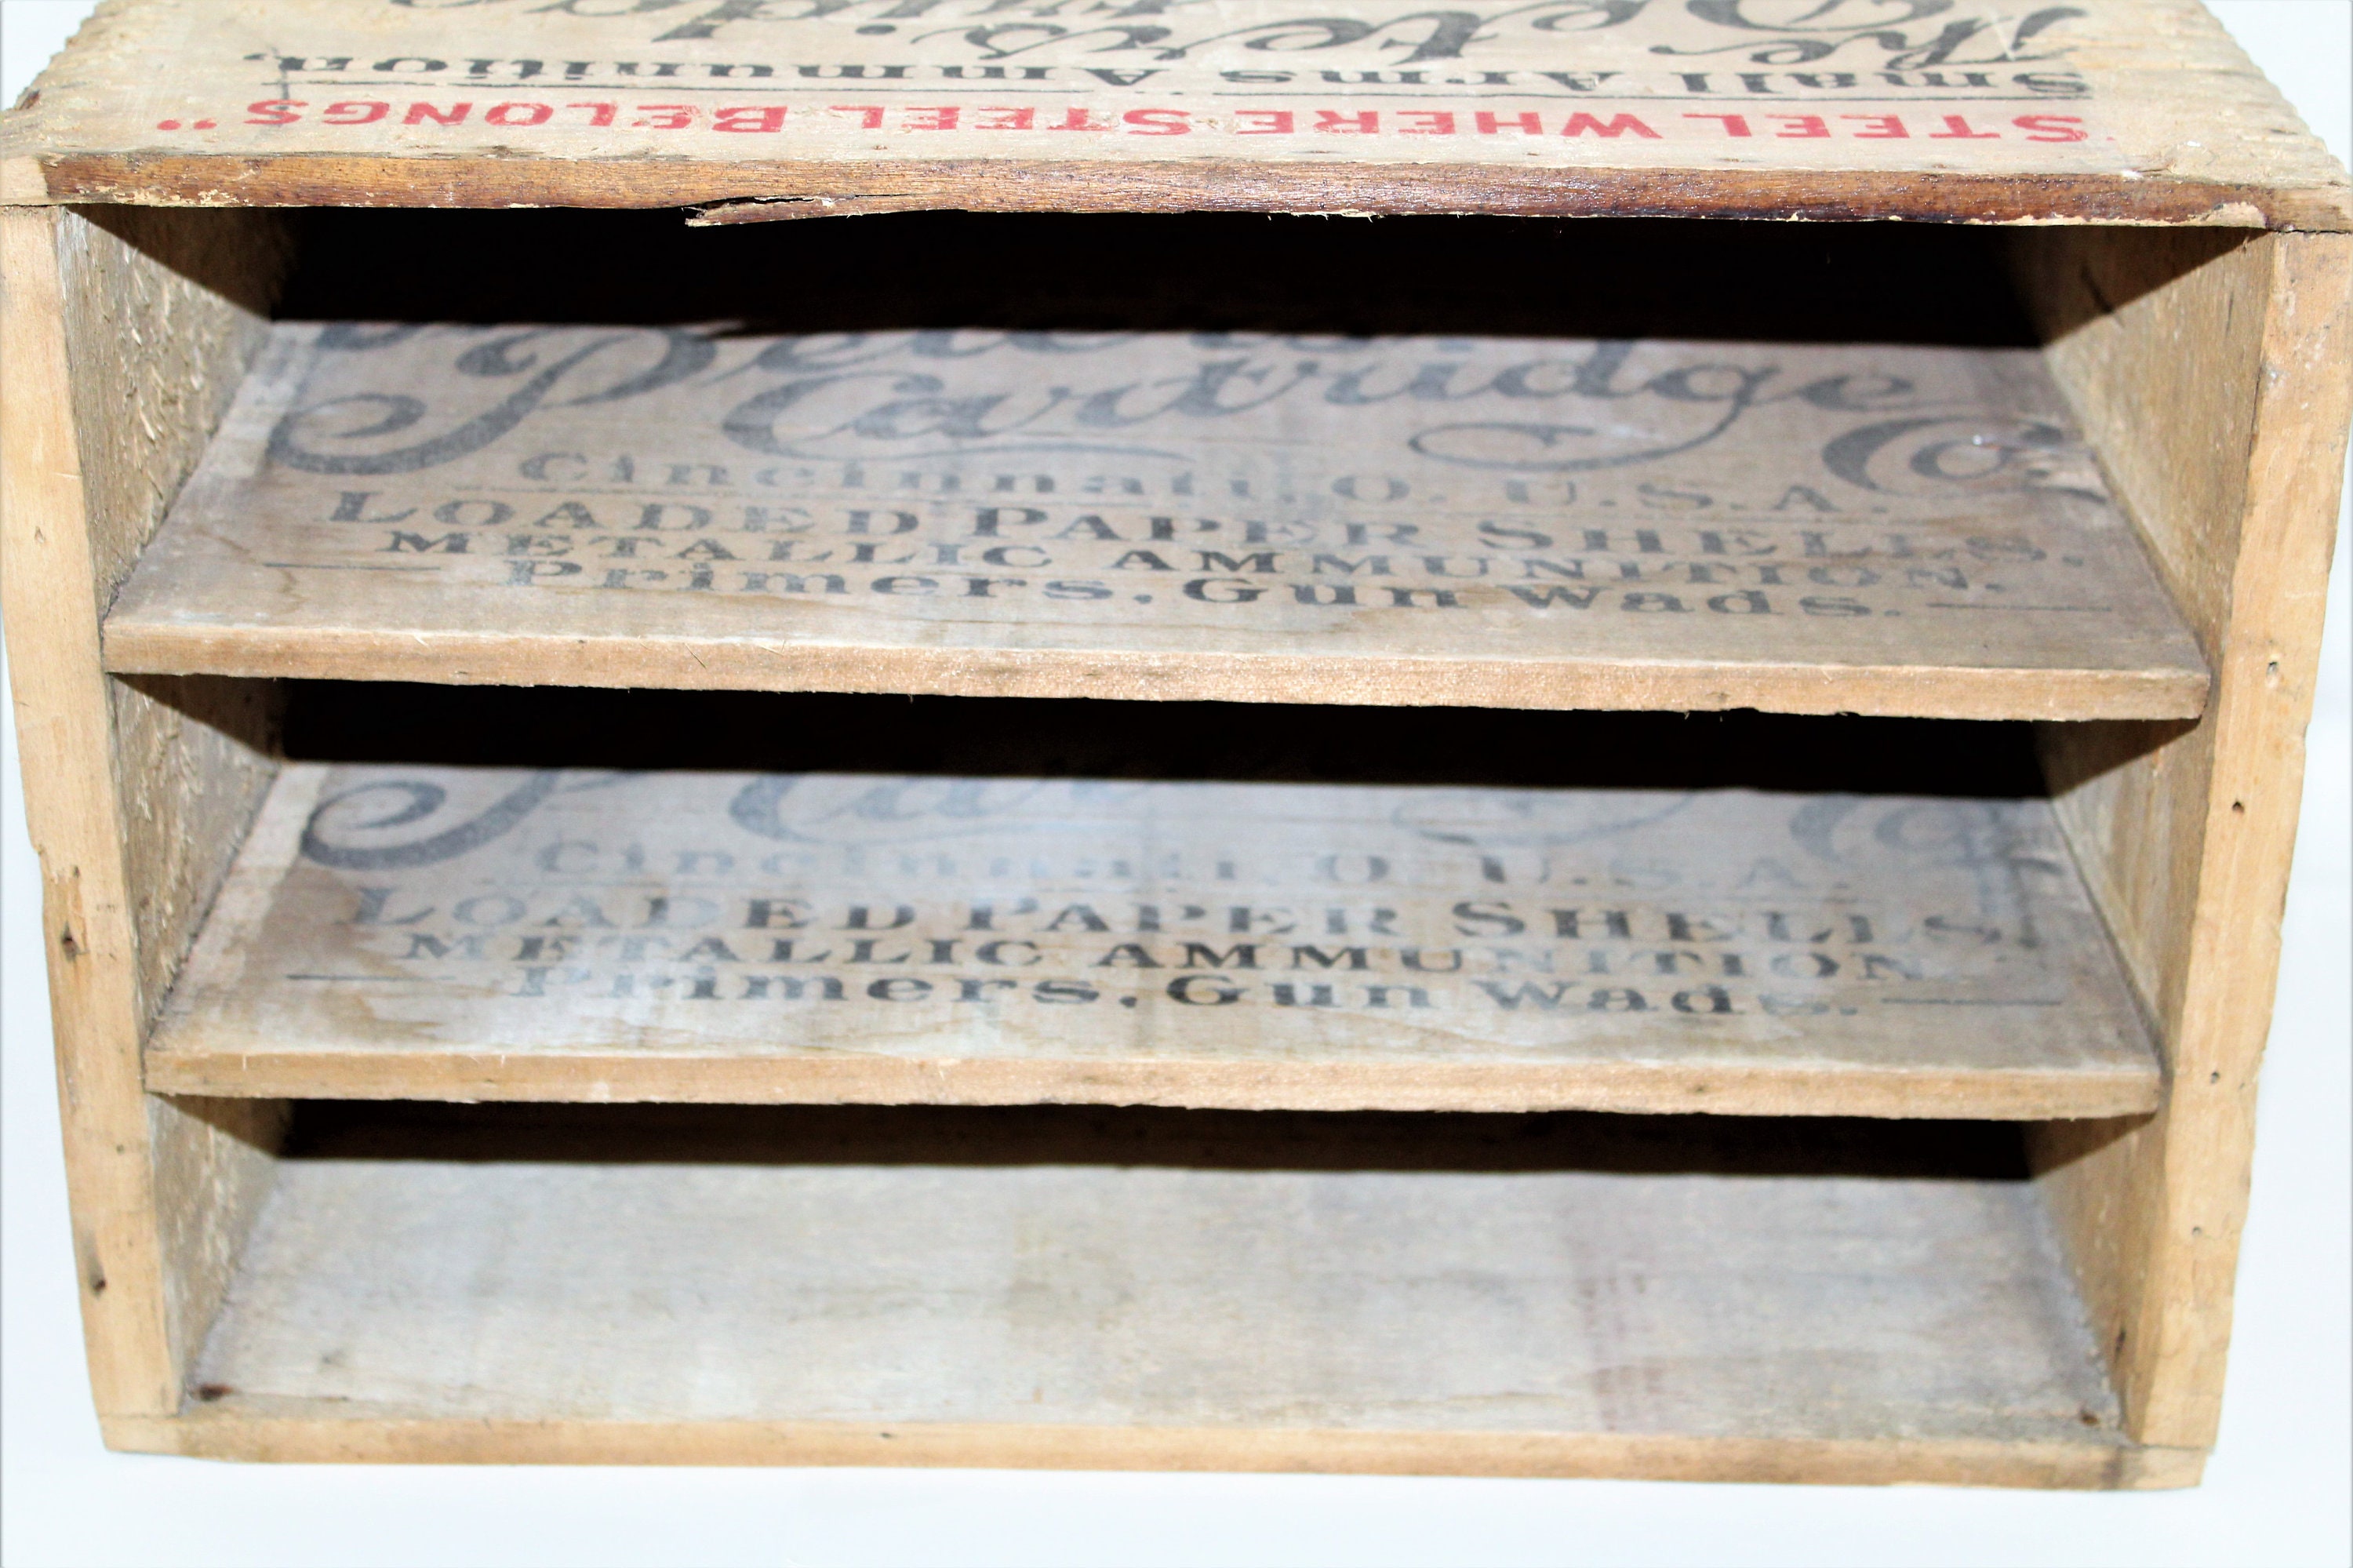 STEEL WHERE STEEL BELONGS"
Small Arms Ammunition.
The Peters
Cartridge Co.
Cincinnati, O. U.S.A.
LOADED PAPER SHELLS.
METALLIC AMMUNITION.
Primers, Gun Wads.
Cincinnati, O. U.S.A.
LOADED PAPER SHELLS.
METALLIC AMMUNITION
Primers, Gun Wads.